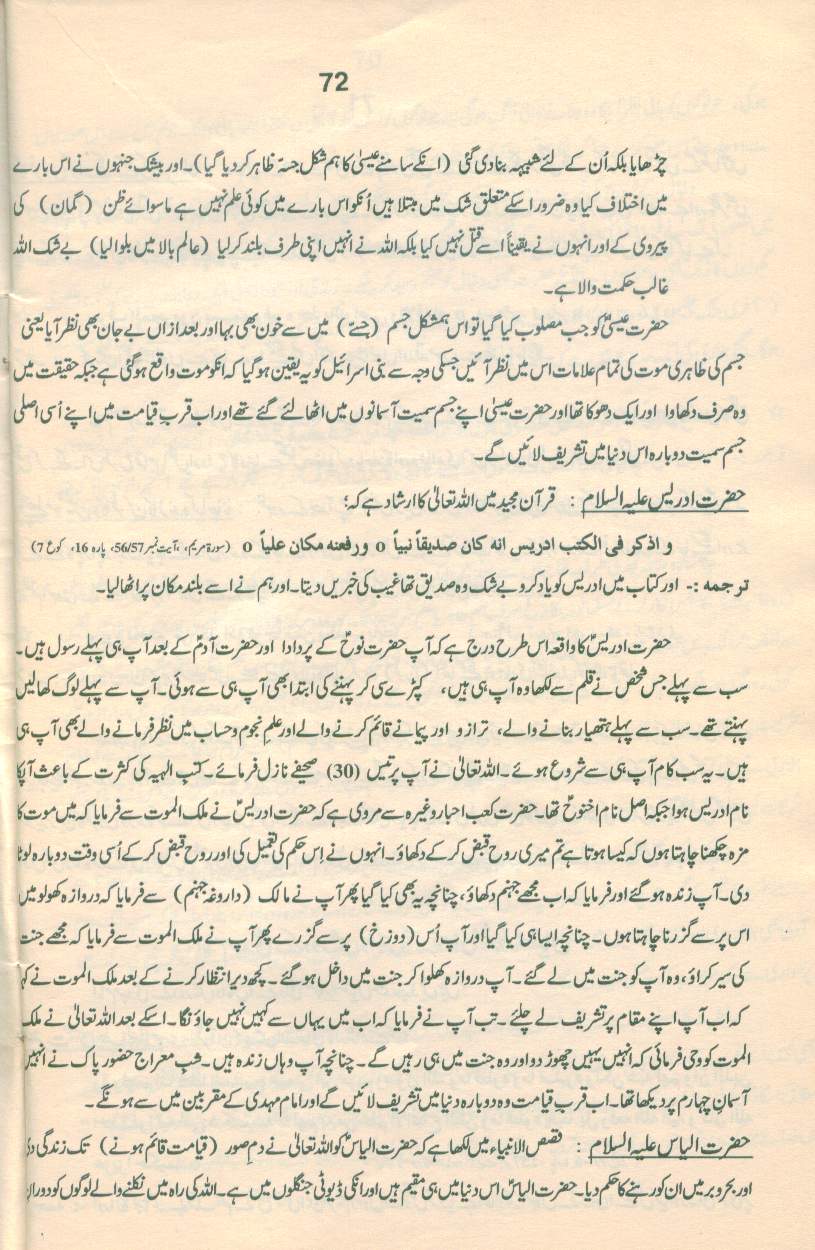 72
چڑھایا بلکہ اُن کے لئے شبیہہ بنا دی گئی (انکے سامنے عیسیٰ کا ہم شکل جسہ ظاہر کر دیا گیا)۔ اور بیشک جنہوں نے اس بارے
میں اختلاف کیا وہ ضرور اسکے متعلق شک میں مبتلا ہیں اُنکو اس بارے میں کوئی علم نہیں ہے ماسوائے ظن (گمان) کی
پیروی کے اور انہوں نے یقیناً اسے قتل نہیں کیا بلکہ اللہ نے انہیں اپنی طرف بلند کر لیا (عالم بالا میں بلوا لیا) بے شک اللہ
غالب حکمت والا ہے۔
حضرت عیسیٰؑ کو جب مصلوب کیا گیا تو اس ہمشکل جسم (جسے) میں سے خون بھی بہا اور بعد ازاں بے جان بھی نظر آیا یعنی
جسم کی ظاہری موت کی تمام علامات اس میں نظر آئیں جسکی وجہ سے بنی اسرائیل کو یہ یقین ہو گیا کہ انکو موت واقع ہو گئی ہے جبکہ حقیقت میں
وہ صرف دکھاوا اور ایک دھوکا تھا اور حضرت عیسیٰ اپنے جسم سمیت آسمانوں میں اٹھا لئے گئے تھے اور اب قربِ قیامت میں اپنے اُسی اصلی
جسم سمیت دوبارہ اس دنیا میں تشریف لائیں گے۔
حضرت ادریس علیہ السلام : قرآن مجید میں اللہ تعالیٰ کا ارشاد ہے کہ؛
و اذکر فی الکتب ادریس انہ کان صدیقاً نبیاً o ورفعنہ مکان علیاً o (سورۃ مریم، آیت نمبر 56/57، پارہ 16، رکوع 7)
ترجمہ :- اور کتاب میں ادریس کو یاد کرو بے شک وہ صدیق تھا غیب کی خبریں دیتا۔ اور ہم نے اسے بلند مکان پر اٹھا لیا۔
حضرت ادریسؑ کا واقعہ اس طرح درج ہے کہ آپ حضرت نوحؑ کے پردادا اور حضرت آدمؑ کے بعد آپ ہی پہلے رسول ہیں۔
سب سے پہلے جس شخص نے قلم سے لکھا وہ آپ ہی ہیں، کپڑے سی کر پہننے کی ابتدا بھی آپ ہی سے ہوئی۔ آپ سے پہلے لوگ کھالیں
پہنتے تھے۔ سب سے پہلے ہتھیار بنانے والے، ترازو اور پیمانے قائم کرنے والے اور علمِ نجوم و حساب میں نظر فرمانے والے بھی آپ ہی
ہیں۔ یہ سب کام آپ ہی سے شروع ہوئے۔ اللہ تعالیٰ نے آپ پر تیس (30) صحیفے نازل فرمائے۔ کتبِ الٰہیہ کی کثرت کے باعث آپکا
نام ادریس ہوا جبکہ اصل نام اخنوخ تھا۔ حضرت کعب احبار وغیرہ سے مروی ہے کہ حضرت ادریسؑ نے ملک الموت سے فرمایا کہ میں موت کا
مزہ چکھنا چاہتا ہوں کہ کیسا ہوتا ہے تم میری روح قبض کر کے دکھاؤ۔ انہوں نے اِس حکم کی تعمیل کی اور روح قبض کر کے اُسی وقت دوبارہ لوٹا
دی۔ آپ زندہ ہو گئے اور فرمایا کہ اب مجھے جہنم دکھاؤ، چنانچہ یہ بھی کیا گیا پھر آپ نے مالک (داروغہ جہنم) سے فرمایا کہ دروازہ کھولو میں
اس پر سے گزرنا چاہتا ہوں۔ چنانچہ ایسا ہی کیا گیا اور آپ اُس (دوزخ) پر سے گزرے پھر آپ نے ملک الموت سے فرمایا کہ مجھے جنت
کی سیر کراؤ، وہ آپ کو جنت میں لے گئے۔ آپ دروازہ کھلوا کر جنت میں داخل ہو گئے۔ کچھ دیر انتظار کرنے کے بعد ملک الموت نے کہا
کہ اب آپ اپنے مقام پر تشریف لے چلئے۔ تب آپ نے فرمایا کہ اب میں یہاں سے کہیں نہیں جاؤنگا۔ اسکے بعد اللہ تعالیٰ نے ملک
الموت کو وحی فرمائی کہ انہیں یہیں چھوڑ دو اور وہ جنت میں ہی رہیں گے۔ چنانچہ آپ وہاں زندہ ہیں۔ شبِ معراج حضور پاک نے انہیں
آسمانِ چہارم پر دیکھا تھا۔ اب قربِ قیامت وہ دوبارہ دنیا میں تشریف لائیں گے اور امام مہدی کے مقربین میں سے ہونگے۔
حضرت الیاس علیہ السلام : قصص الانبیاء میں لکھا ہے کہ حضرت الیاسؑ کو اللہ تعالیٰ نے دمِ صور (قیامت قائم ہونے) تک زندگی دی
اور بحر و بر میں ان کو رہنے کا حکم دیا۔ حضرت الیاسؑ اس دنیا میں ہی مقیم ہیں اور انکی ڈیوٹی جنگلوں میں ہے۔ اللہ کی راہ میں نکلنے والے لوگوں کو دوران